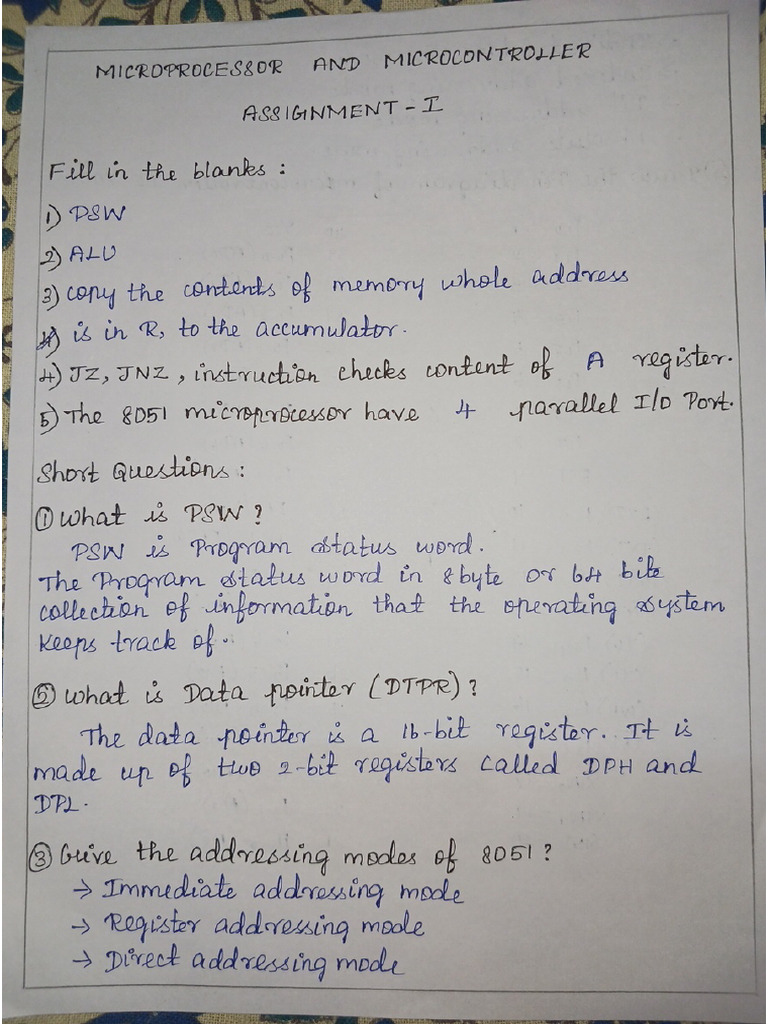 MICROPROCESSOR AND MICROCONTROLLER
ASSIGNMENT - I
Fill in the blanks :
1) PSW
2) ALU
3) copy the contents of memory whole address
is in R, to the accumulator.
4) JZ, JNZ, instruction checks content of A register.
5) The 8051 microprocessor have 4 parallel I/O Port.
Short Questions :
① What is PSW ?
PSW is Program status word.
The Program status word in 8 byte or 64 bite
collection of information that the operating system
keeps track of.
② What is Data pointer (DTPR) ?
The data pointer is a 16-bit register. It is
made up of two 2-bit registers called DPH and
DPL.
③ Give the addressing modes of 8051 ?
→ Immediate addressing mode
→ Register addressing mode
→ Direct addressing mode